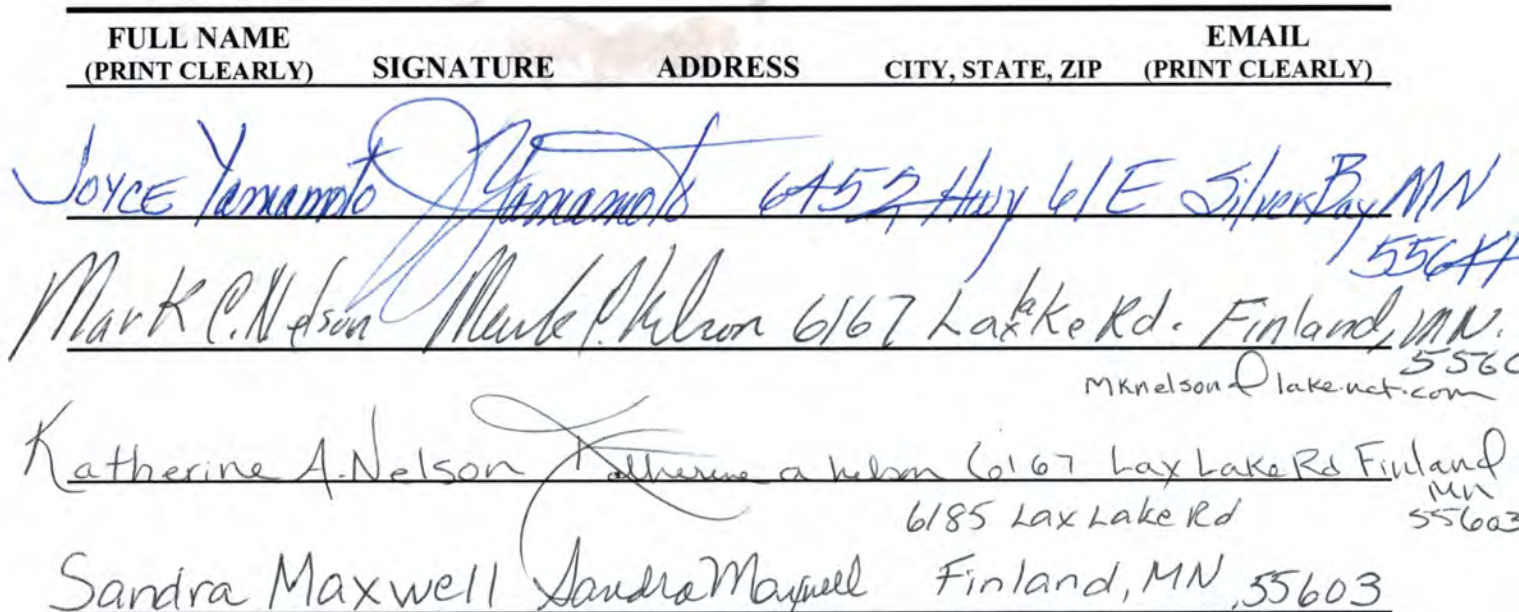 FULL NAME EMAIL
(PRINT CLEARLY) SIGNATURE ADDRESS CITY, STATE, ZIP (PRINT CLEARLY)
JOYCE Yamamoto JYamamoto 6452 Hwy 61 E Silver Bay MN
Mark C. Nelson Mark C. Nelson 6167 Lax Lake Rd. Finland, MN.
mknelson@lakenet.com
Katherine A. Nelson Katherine a nelson 6167 Lax Lake Rd Finland
MN
6185 Lax Lake Rd 55603
Sandra Maxwell Sandra Maxwell Finland, MN, 55603